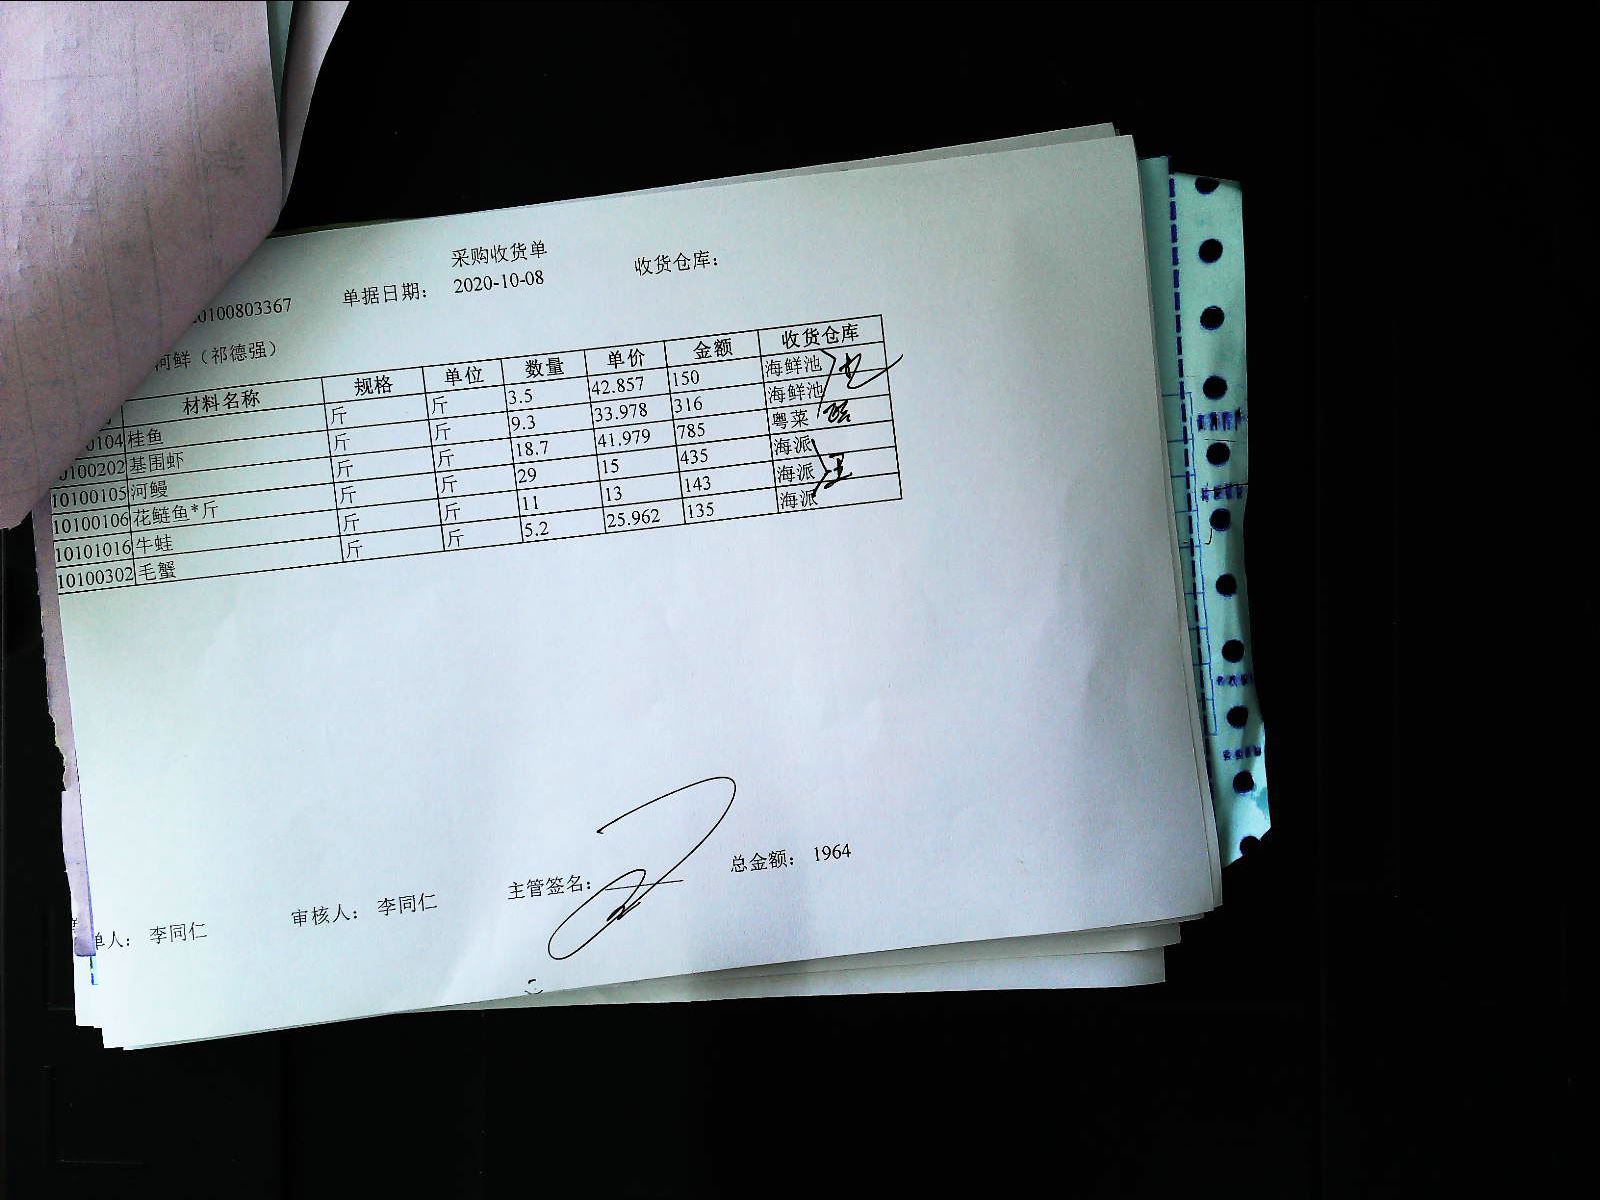 采购收货单
20100803367 单据日期： 2020-10-08 收货仓库：
河鲜（祁德强）
材料名称 规格 单位 数量 单价 金额 收货仓库
0104 桂鱼 斤 斤 3.5 42.857 150 海鲜池
10100202 基围虾 斤 斤 9.3 33.978 316 海鲜池
10100105 河鳗 斤 斤 18.7 41.979 785 粤菜
10100106 花鲢鱼*斤 斤 斤 29 15 435 海派
10101016 牛蛙 斤 斤 11 13 143 海派
10100302 毛蟹 斤 斤 5.2 25.962 135 海派
单人： 李同仁 审核人： 李同仁 主管签名： 总金额： 1964